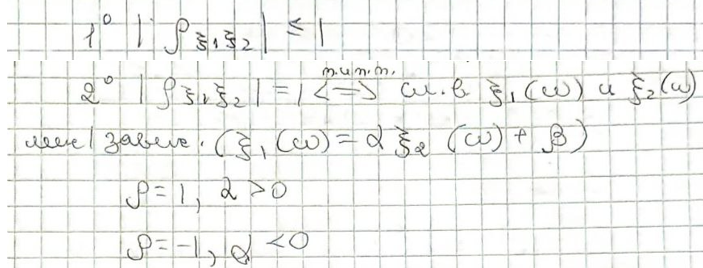 1° | ρ ξ₁ξ₂ | ≤ 1
т.и т.т.
2° | ρ ξ₁ξ₂ | = 1 <=> сл. в ξ₁(ω) и ξ₂(ω)
лин/ завис. (ξ₁(ω) = α ξ₂ (ω) + β)
ρ = 1, α > 0
ρ = -1, α < 0